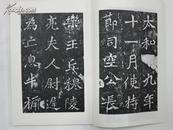 太和九年
十一月使持
節司空公長
樂王丘穆陵
亮夫人尉遲
為亡息牛橛